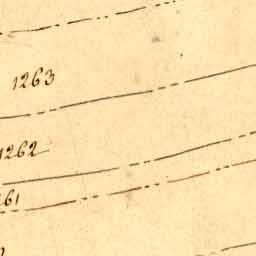 1263
1262
261